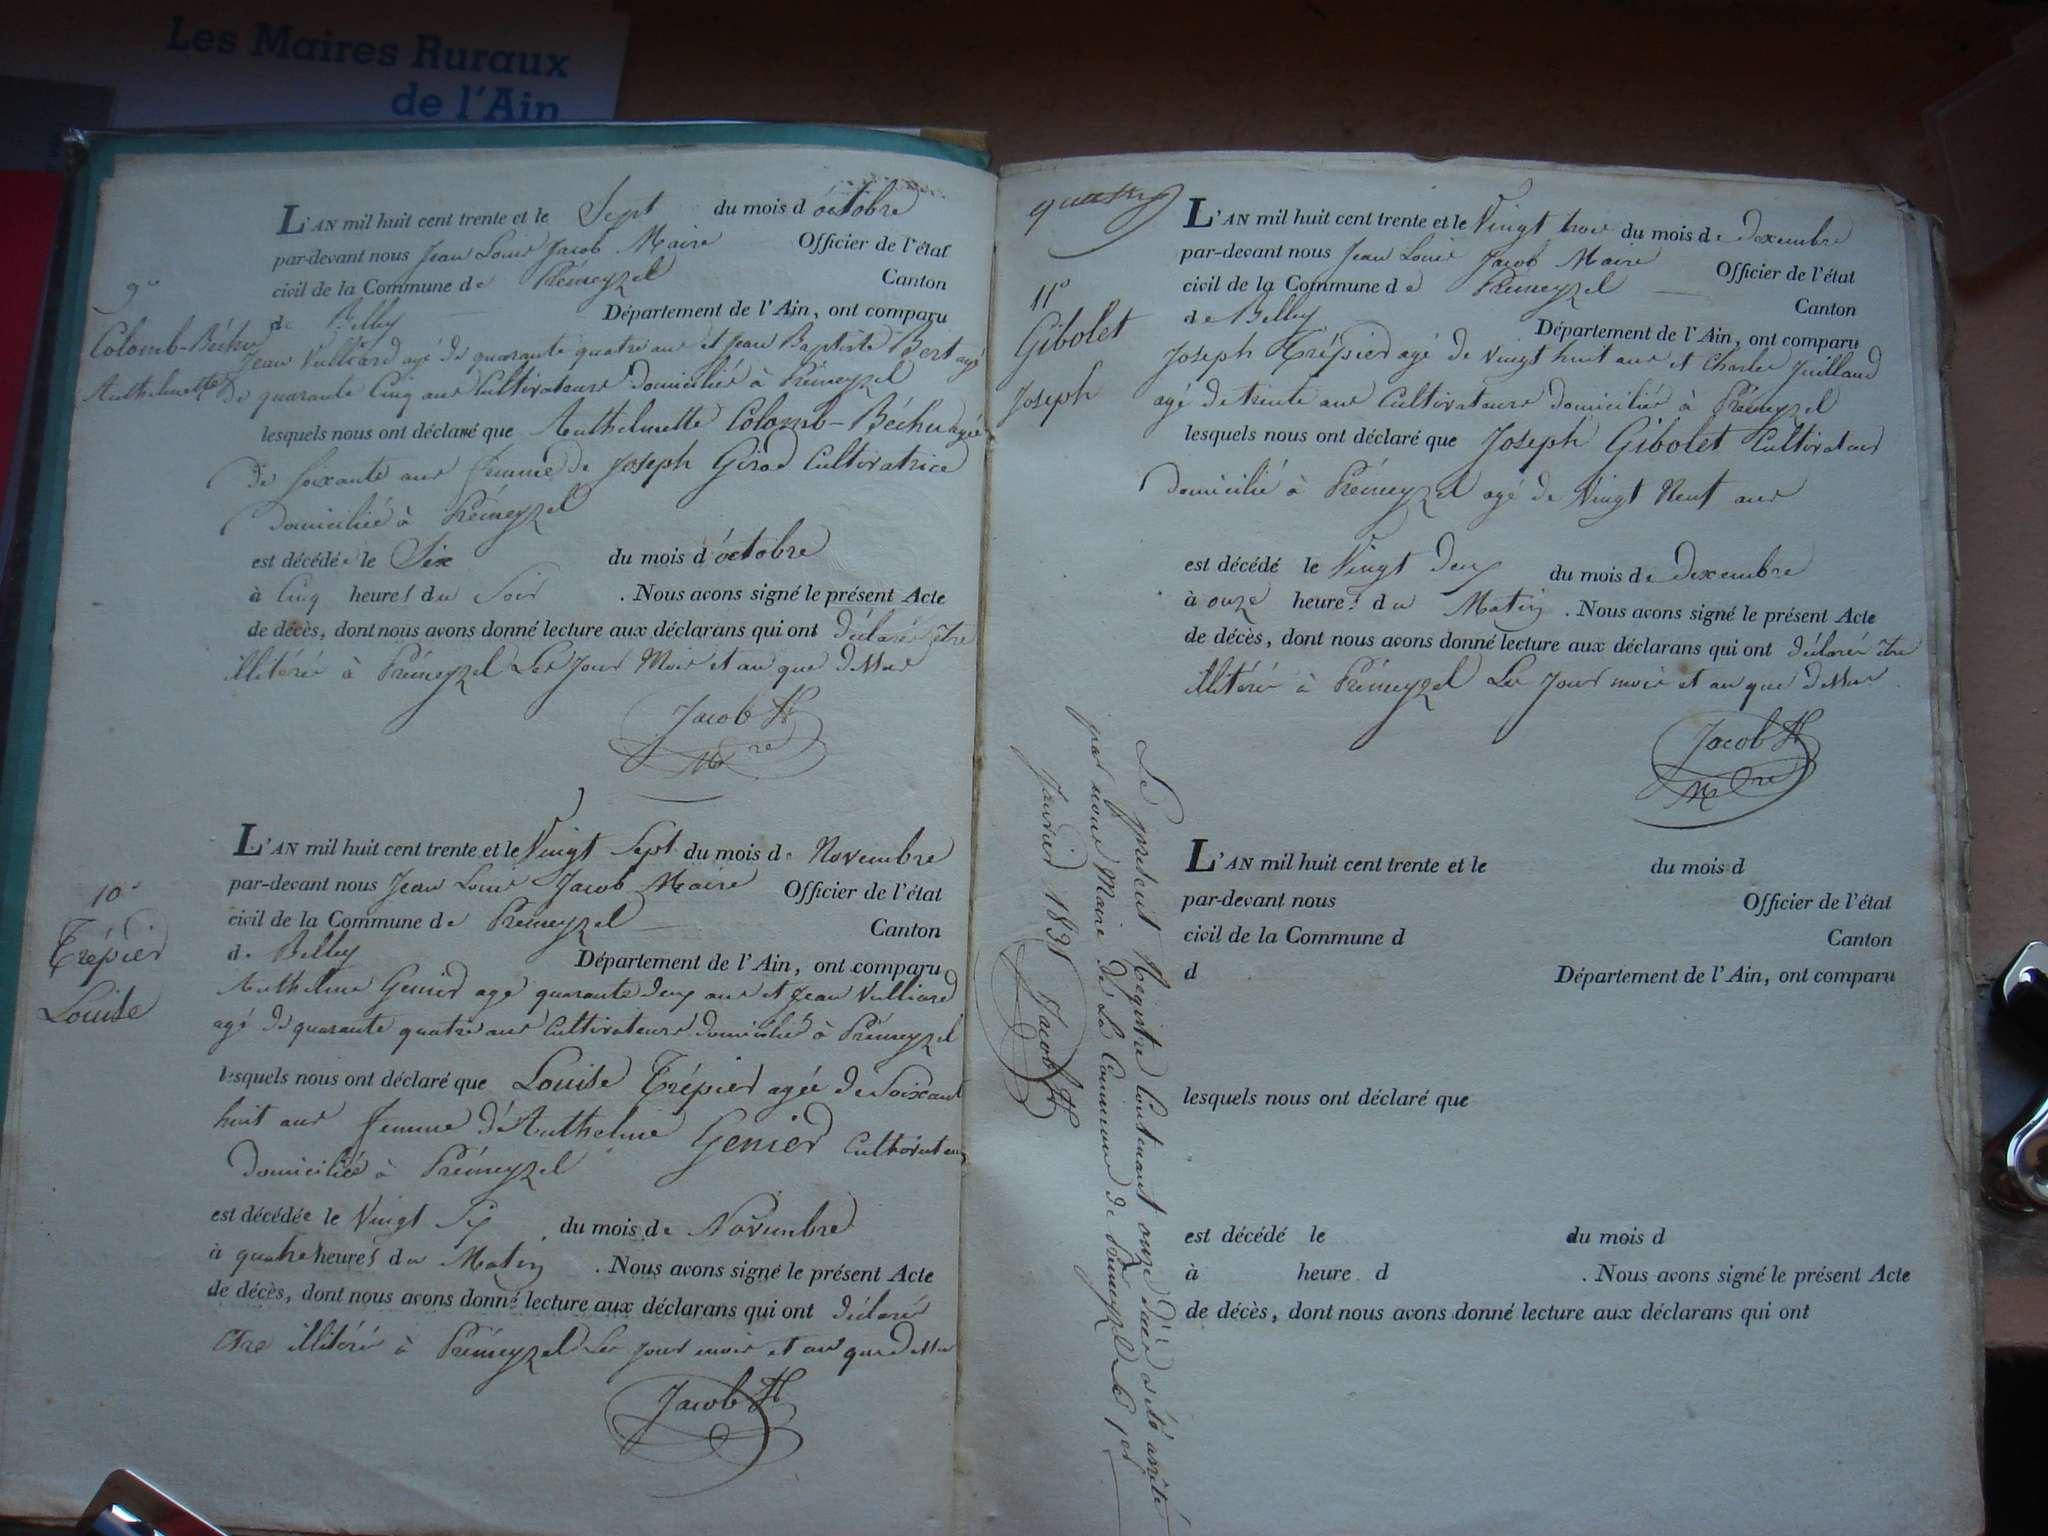 Les Maires Ruraux
de l'Ain
9°
Colomb-Béchu
Anthelmette
L'AN mil huit cent trente et le Sept du mois d'octobre
par-devant nous Jean Louis Jacob Maire Officier de l'état
civil de la Commune de Prémeyzel Canton
de Belley Département de l'Ain, ont comparu
Jean Vulliard agé de quarante quatre ans et Jean Baptiste Bert agé
de quarante Cinq ans Cultivateurs domiciliés à Prémeyzel
lesquels nous ont déclaré que Anthelmette Colomb-Béchu agée
de soixante ans femme de Joseph Girod Cultivatrice
domiciliée à Prémeyzel
est décédée le Six du mois d'octobre
à Cinq heures du Soir . Nous avons signé le présent Acte
de décès, dont nous avons donné lecture aux déclarans qui ont déclaré être
illitéré à Prémeyzel Les Jour Mois et an que dessus
Jacob
Mre
10°
Trépier
Louise
L'AN mil huit cent trente et le Vingt Sept du mois de Novembre
par-devant nous Jean Louis Jacob Maire Officier de l'état
civil de la Commune de Prémeyzel Canton
de Belley Département de l'Ain, ont comparu
Anthelme Genier agé quarante deux ans et Jean Vulliard
agé de quarante quatre ans Cultivateurs domicilié à Prémeyzel
lesquels nous ont déclaré que Louise Trépier agée de Soixante
huit ans femme d'Anthelme Genier Cultivateur
domiciliée à Prémeyzel
est décédée le Vingt Six du mois de Novembre
à quatre heures du Matin . Nous avons signé le présent Acte
de décès, dont nous avons donné lecture aux déclarans qui ont déclaré
être illitéré à Prémeyzel Les jour mois et an que dessus
Jacob
11°
Gibolet
Joseph
L'AN mil huit cent trente et le Vingt trois du mois de decembre
par-devant nous Jean Louis Jacob Maire Officier de l'état
civil de la Commune de Prémeyzel Canton
de Belley Département de l'Ain, ont comparu
Joseph Trépier agé de Vingt huit ans et Charles Juilland
agé de trente ans Cultivateurs domiciliés à Prémeyzel
lesquels nous ont déclaré que Joseph Gibolet Cultivateur
domicilié à Prémeyzel agé de Vingt Neuf ans
est décédé le Vingt deux du mois de decembre
à onze heures du Matin . Nous avons signé le présent Acte
de décès, dont nous avons donné lecture aux déclarans qui ont déclaré être
illitéré à Prémeyzel Les Jour mois et an que dessus
Jacob
Mre
Le présent Régistre Contenant onze Actes a été arrêté
par nous Maire de La Commune de Prémeyzel Le 1er
Janvier 1831 Jacob
L'AN mil huit cent trente et le du mois d
par-devant nous Officier de l'état
civil de la Commune d Canton
d Département de l'Ain, ont comparu
lesquels nous ont déclaré que
est décédé le du mois d
à heure d . Nous avons signé le présent Acte
de décès, dont nous avons donné lecture aux déclarans qui ont